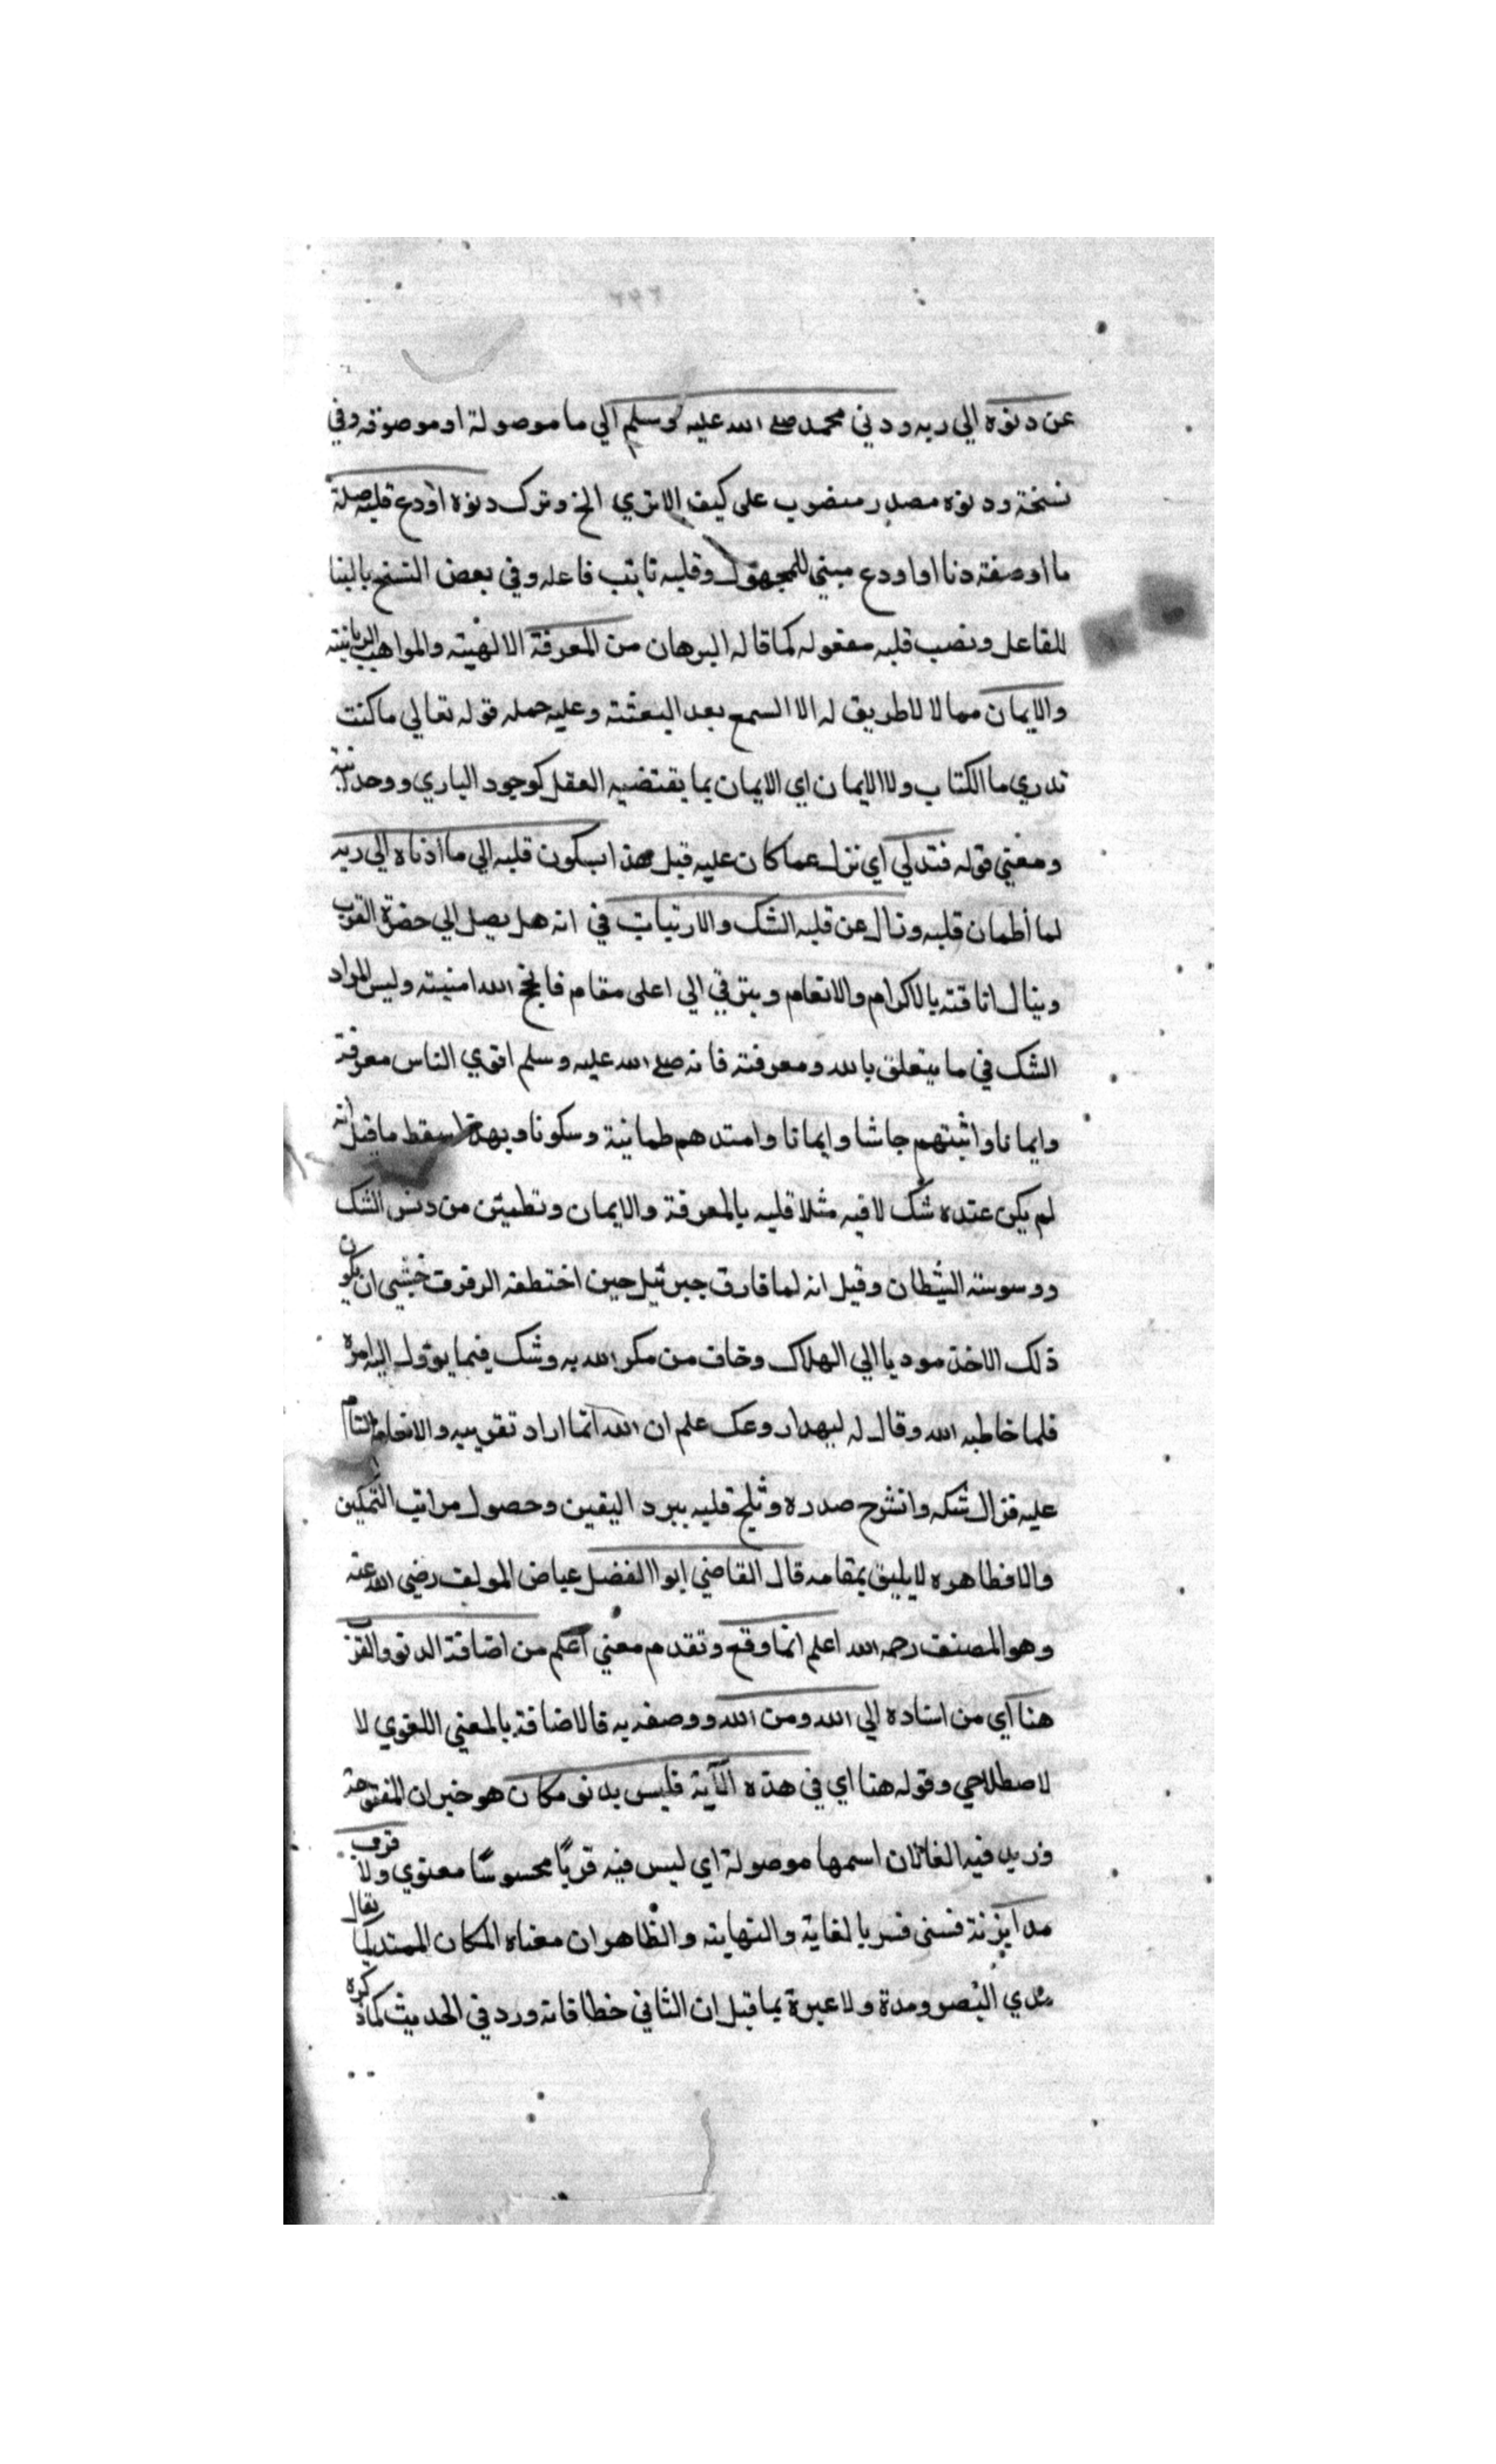 ٢٤٢
عن دنوه الي ربه ودني محمد صلى الله عليه وسلم الي ما موصولة او موصوفه وفي
نسخة ودنوه مصدر منصوب على كيف الا تري الخ وترك دنوه اودع قلبه صلة
ما او صفته دنا او اودع مبني للمجهول وقلبه نايب فاعله وفي بعض النسخ بالبنا
للفاعل ونصب قلبه مفعوله كما قاله البرهان من المعرفة الالهيته والمواهب الربانيته
والايمان مما لا لاطريق له الا السمع بعد البعثته وعليه حمله قوله تعالي ما كنت
تدري ما الكتاب ولا الايمان اي الايمان بما يقتضيه العقل كوجود الباري ووحدانيته
ومعني قوله فتدلي اي نزل عما كان عليه قبل هذا بسكون قلبه الي ما ادناه الي ربه
لما أطمان قلبه وزال عن قلبه الشك والارتياب في انه هل يصل الي حضرة القرب
وينال اناقته بالاكرام والانعام ويترقي الي اعلى مقام فانجح الله امنيته وليس المراد
الشك في ما يتعلق بالله ومعرفته فانه صلى الله عليه وسلم اقوي الناس معرفة
وايمانا واثبتهم جاشا وايمانا وامتدهم طمانية وسكونا وبهذا سقط ما قيل انه
لم يكن عنده شك لا فيه مثلا قلبه بالمعرفة والايمان وتطمين من دنس الشك
ووسوسته الشيطان وقيل انه لما فارق جبرئيل حين اختطفه الرفرف خشي ان يكون
ذلك الاخذ موديا الي الهلاك وخاف من مكر الله به وشك فيما يؤول اليه امره
فلما خاطبه الله وقال له ليهدا روعك علم ان الله انما اراد تقريبه والانعام التام
عليه فزال شكه وانشرح صدره وثلج قلبه ببرد اليقين وحصول مراتب التمكين
والا فظاهره لا يليق بمقامه قال القاضي ابوا الفضل عياض المولف رضي الله عنه
وهو المصنف رحمه الله اعلم انما وقع وتقدم معني اعلم من اضافة الدنو والقرب
هنا اي من اسناده الي الله ومن الله ووصفه به فالاضافة بالمعني اللغوي لا
لاصطلاحي وقوله هنا اي في هذه الآية فليس بدنو مكان هو خبر ان المفتوحة
وزيد فيه الفا لان اسمها موصولة اي ليس فيه قربًا محسوسًا معنوي ولا قرب
مدا بزنة فسر بالغاية والنهايته والظاهر ان معناه المكان الممتد كما يقال
مدي البصر ومدة ولا عبرة بما قيل ان الثاني خطا فانه ورد في الحديث كما ذكره